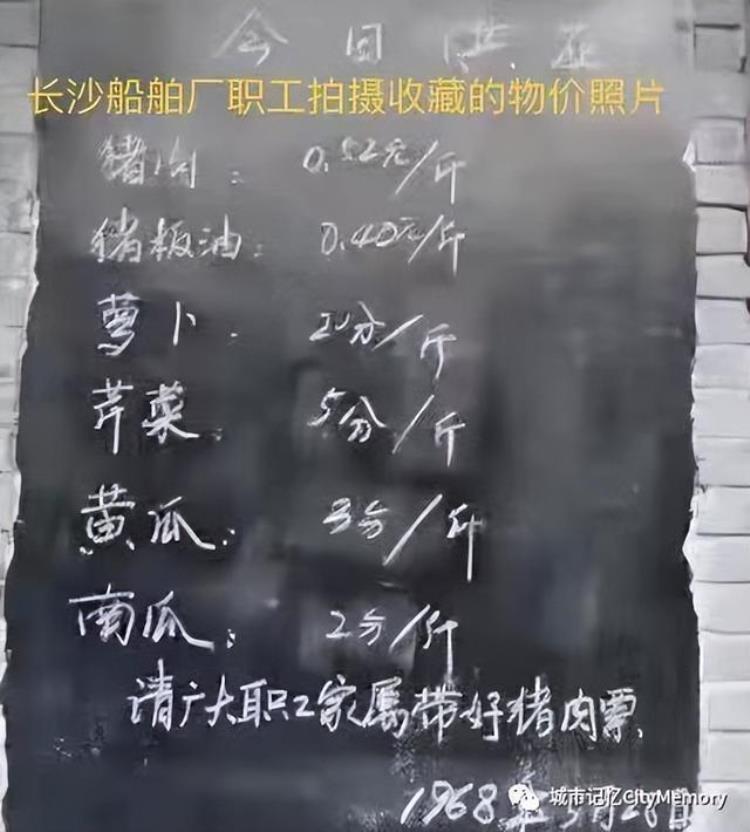 今日供应
长沙船舶厂职工拍摄收藏的物价照片
猪肉: 0.52元/斤
猪板油: 0.40元/斤
萝卜. /斤
芹菜. 5分/斤
黄瓜: 3分/斤
南瓜: 2分/斤
请广大职工家属带好猪肉票.
1968年 月28日
城市记忆CityMemory